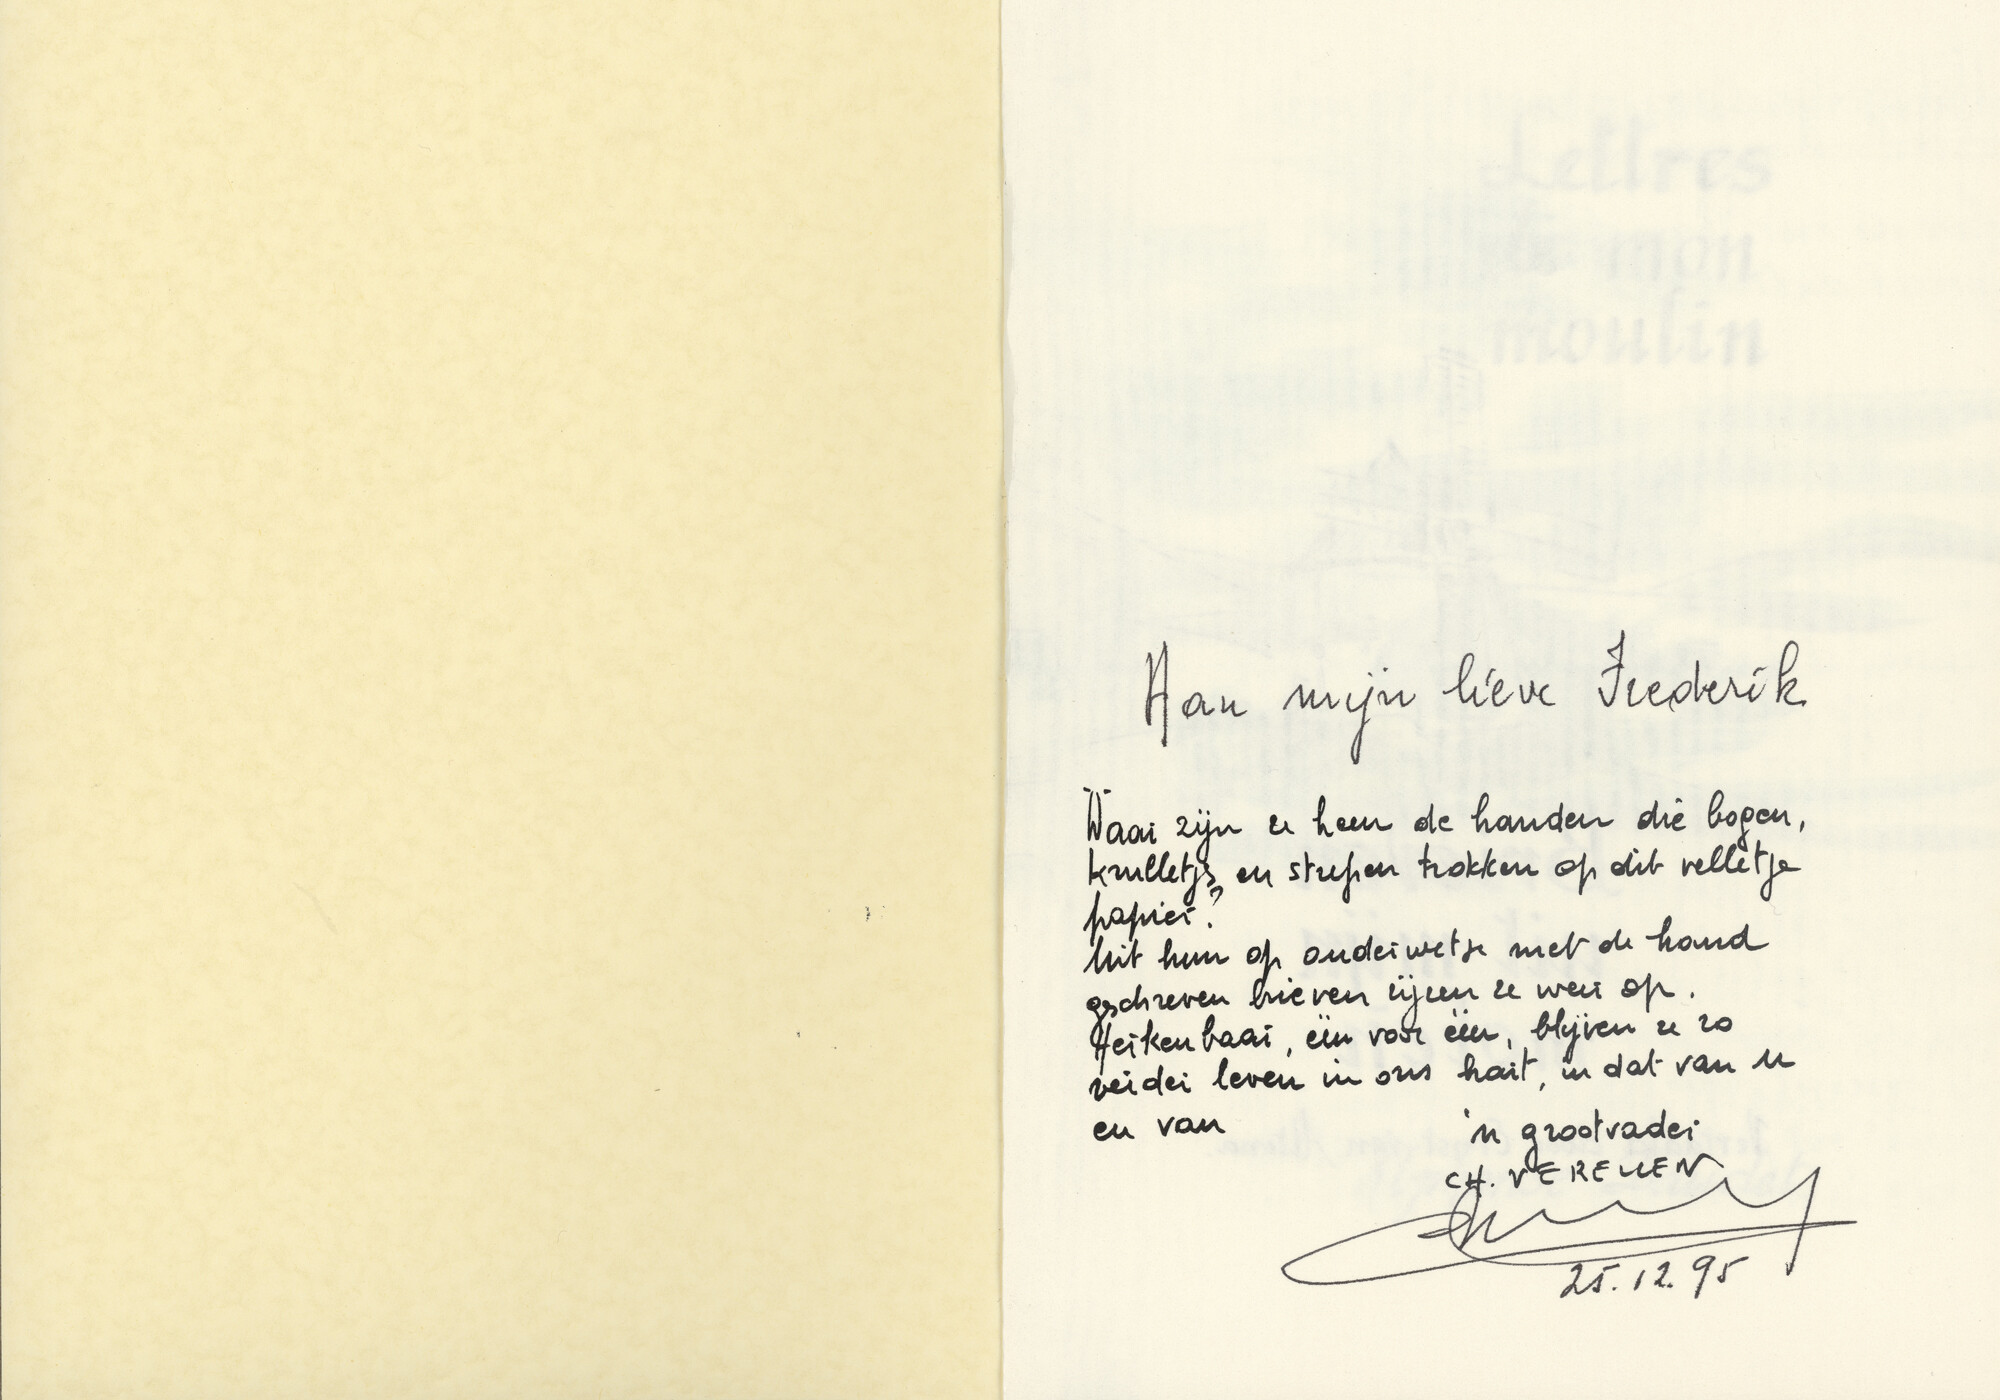 Lettres
de mon
moulin
Aan mijn lieve Frederik
Waar zijn ze heen de handen die bogen,
krulletjes en strepen trokken op dit velletje
papier?
Uit hun op ouderwetse met de hand
geschreven brieven rijzen ze weer op.
Herkenbaar, één voor één, blijven ze zo
verder leven in ons hart, in dat van u
en van 'n grootvader
CH. VERELLEN
25.12.95